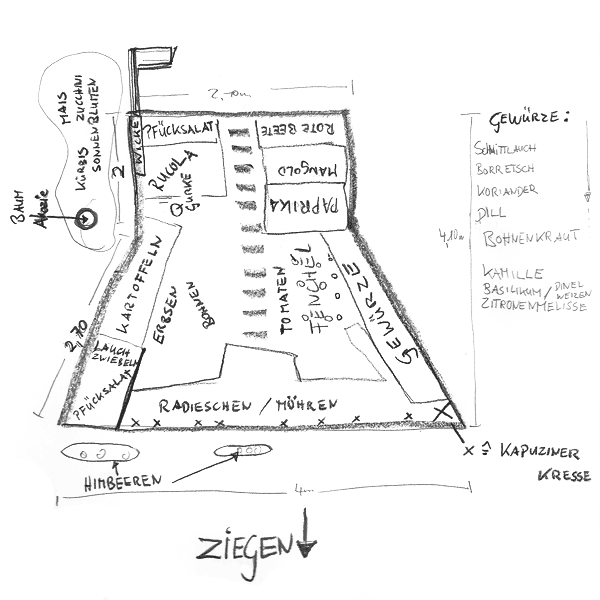 2,10m
MAIS
ZUCCHINI
KÜRBIS
SONNENBLUMEN
BAUM
Akazie
2
WICKE
PFÜCKSALAT
ROTE BEETE
RUCOLA
GURKE
MANGOLD
PAPRIKA
KARTOFFELN
ERBSEN
BOHNEN
TOMATEN
FENCHEL
GEWÜRZE
2,70
LAUCH
ZWIEBELN
PFÜCKSALAT
RADIESCHEN / MÖHREN
HIMBEEREN
4m
ZIEGEN
GEWÜRZE:
SCHNITTLAUCH
BORRETSCH
KORIANDER
DILL
4,10m
BOHNENKRAUT
KAMILLE
BASILIKUM / DINEL
WEIZEN
ZITRONENMELISSE
x ≙ KAPUZINER
KRESSE